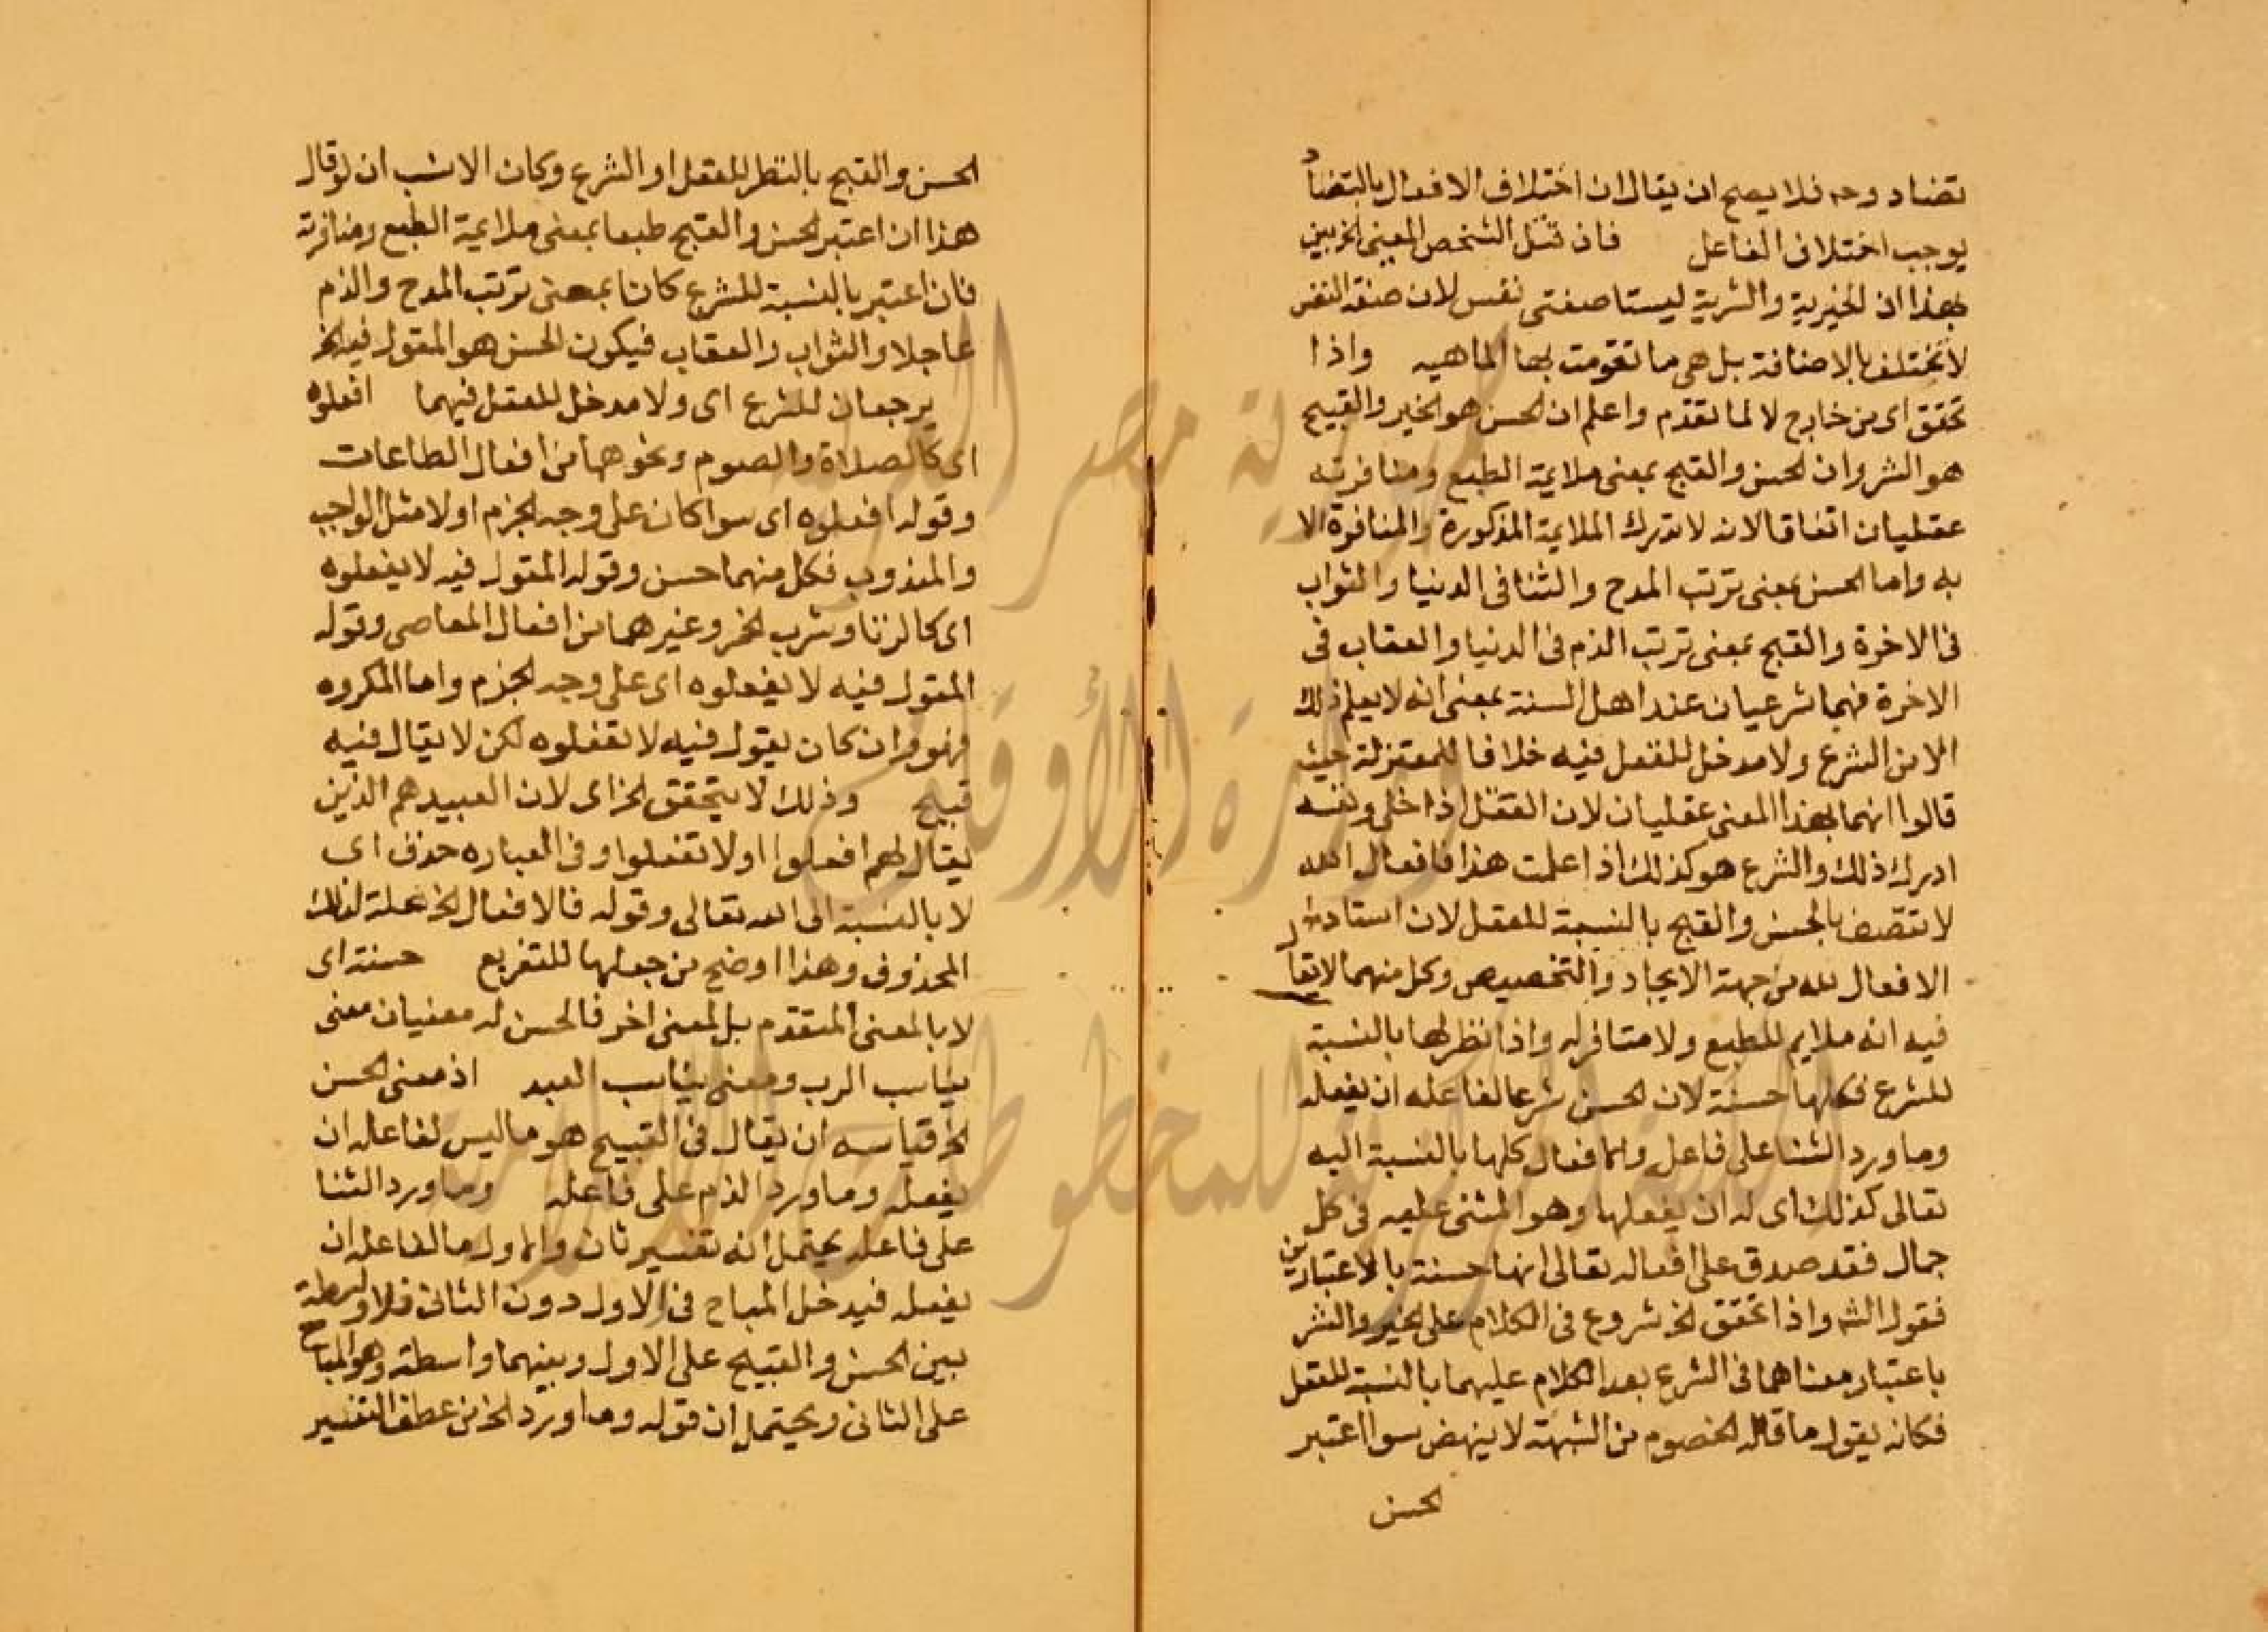 تضاد وحه فلا يصح ان يقال ان اختلاف الافعال بالتضاد
يوجب اختلاف الفاعل فان قتل الشخص المعين الخ يبين
بهذا ان الخيرية والشرية ليستا صفتى نفس لان صفة النفس
لا تختلف بالاضافة بل هى ما تقومت بها الماهيه واذا
تحقق اى من خارج لا لما تقدم واعلم ان الحسن هو الخير والقبيح
هو الشر وان الحسن والقبح بمعنى ملايمة الطبع ومنافرته
عقليان اتفاقا لانه لا تدرك الملايمة المذكورة والمنافرة الا
به واما الحسن بمعنى ترتب المدح والثنا فى الدنيا والثواب
فى الاخرة والقبح بمعنى ترتب الذم فى الدنيا والعقاب فى
الاخرة فهما شرعيان عند اهل السنة بمعنى انه لا يعلم ذلك
الا من الشرع ولا مدخل للعقل فيه خلافا للمعتزلة حيث
قالوا انهما بهذا المعنى عقليان لان العقل اذا خلى ونفسه
ادرك ذلك والشرع هو كذلك اذا علمت هذا فافعال الله
لا تتصف بالحسن والقبح بالنسبة للعقل لان استاد
الافعال لله من جهة الايجاد والتخصيص وكل منهما لا يقال
فيه انه ملايم للطبع ولا منافر له واذا نظر لها بالنسبة
للشرع فكلها حسنة لان الحسن شرعا لفاعله ان يفعله
وما ورد الثنا على فاعله والافعال كلها بالنسبة اليه
تعالى كذلك اى له ان يفعلها وهو المثنى عليه فى كل
جمال فقد صدق على افعاله تعالى انها حسنة بالاعتبارين
فقول الشه واذا تحقق الخ شروع فى الكلام على الخير والشر
باعتبار معناهما فى الشرع بعد الكلام عليهما بالنسبة للعقل
فكانه يقول ما قاله الخصوم من الشبهة لا ينهض سوا اعتبر
الحسن
الحسن والقبح بالنظر للعقل او الشرع وكان الانسب ان لو قال
هذا ان اعتبر الحسن والقبح طبعا بمعنى ملايمة الطبع ومنافرته
فان اعتبر بالنسبة للشرع كانا بمعنى ترتب المدح والذم
عاجلا والثواب والعقاب فيكون الحسن هو المقول فيه الخ
يرجعان للشرع اى ولا مدخل للعقل فيهما افعلوه
اى كالصلاة والصوم ونحوهما من افعال الطاعات
وقوله افعلوه اى سوا كان على وجه الجزم اولا مثل الواجب
والمندوب فكل منهما حسن وقوله المقول فيه لا يفعلوه
اى كالزنا وشرب الخمر وغيرهما من افعال المعاصى وقوله
المقول فيه لا يفعلوه اى على وجه الجزم واما المكروه
فهو وان كان يقول فيه لا تفعلوه لكن لا يقال فيه
قبيح وذلك لا يتحقق الخ اى لان العبيد هم الذين
يقال لهم افعلوا او لا تفعلوا وفى العباره حذف اى
لا بالنسبة الى الله تعالى وقوله فالافعال الخ علة لذلك
المحذوف وهذا اوضح من جعلها للتفريع حسنة اى
لا بالمعنى المتقدم بل لمعنى اخر فالحسن له معنيان معنى
يناسب الرب ومعنى يناسب العبد اذ معنى الحسن
الخ قياسه ان يقال فى القبيح هو ما ليس لفاعله ان
يفعله وما ورد الذم على فاعله وما ورد الثنا
على فاعله يحتمل انه تفسير ثان والاول ما لفاعله ان
يفعله فيدخل المباح فى الاول دون الثانى فلا واسطة
بين الحسن والقبيح على الاول وبينهما واسطة وهو المباح
على الثانى ويحتمل ان قوله وما ورد الخ من عطف التفسير